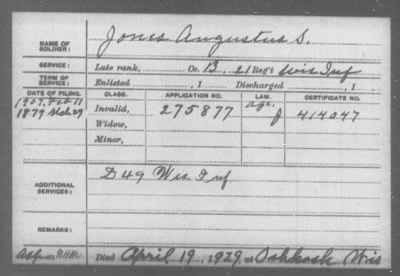 NAME OF SOLDIER: Jones Augustus S.
SERVICE: Late rank, Co. B, 21 Reg't Wis Inf
TERM OF SERVICE: Enlisted , 1 Discharged , 1
DATE OF FILING. CLASS. APPLICATION NO. LAW. CERTIFICATE NO.
1907, Feb 11 age.
1879 Invalid, 275877 J 414047
Widow,
Minor,
ADDITIONAL SERVICES: D 49 Wis Inf
REMARKS:
Died April 19, 1929, at Oshkosh Wis